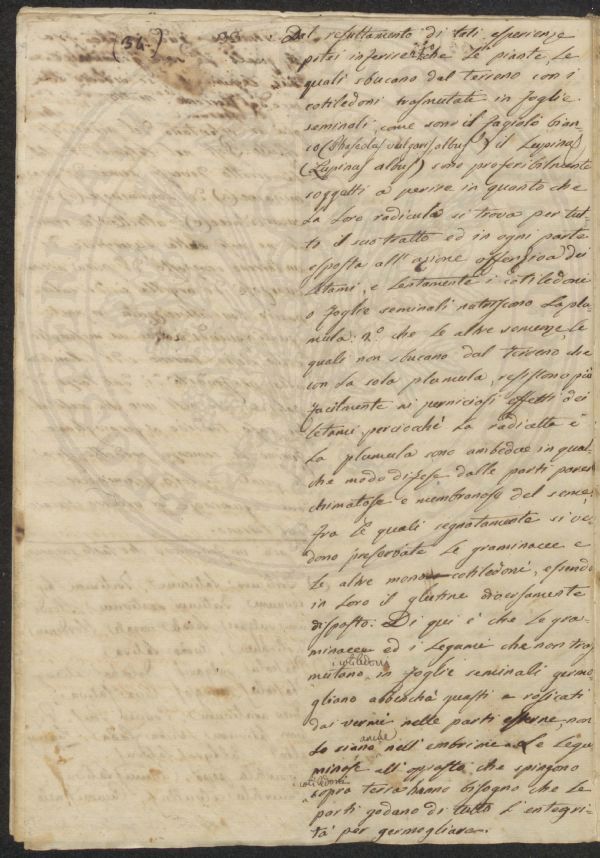 (34.)
Dal resultamento di tali esperienze
potei inferire 1.º che le piante le
quali sbucano dal terreno con i
cotiledoni trasmutate in foglie
seminali, come sono il fagiolo bian-
co (Phaseolus vulgaris albus) e il Lupino
(Lupinus albus) sono preferibilmente
soggetti a perire in quanto che
la loro radicula si trova per tut-
to il suo tratto ed in ogni parte
esposta all'azione offensiva dei
letami, e lentamente i cotiledoni
o foglie seminali nutriscono la plu-
mula: 2.º che le altre semenze, le
quali non sbucano dal terreno che
con la sola plumula, resistono più
facilmente ai perniciosi effetti dei
letami, perciochè la radicetta e
la plumula sono ambedue in qual-
che modo difese dalle parti paren-
chimatose e membranose del seme,
fra le quali segnatamente si ve-
dono preservate le graminacee e
le altre mono-cotiledoni, essendo
in loro il glutine diversamente
disposto: Di qui è che le gra-
minacee ed i legumi che non tras-
i cotiledoni
mutano in foglie seminali germo-
gliano abbenchè guasti e rosicati
dai vermi nelle parti esterne, non
anche
lo siano nell'embrione. Le legu-
minose all'opposto che spingono
i cotiledoni
sopra terra hanno bisogno che le
parti godano di tutto l'integri-
tà per germogliare.